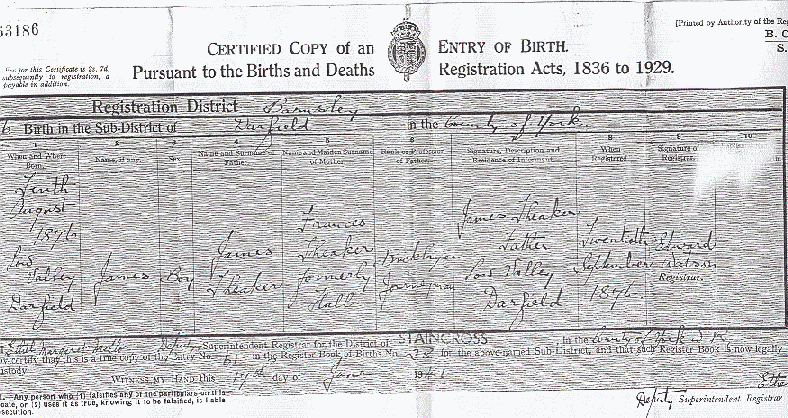 53186
[Printed by Authority of the Reg
CERTIFIED COPY of an ENTRY OF BIRTH.
B. C
S.
Fee for this Certificate is 2s. 7d.
subsequently to registration, a
payable in addition.
Pursuant to the Births and Deaths Registration Acts, 1836 to 1929.
Registration District Barnsley
Birth in the Sub-District of Darfield in the County of York.
1 2 3 4 5 6 7 8 9 10
When and Where Born. Name, if any. Sex. Name and Surname of Father. Name and Maiden Surname of Mother. Rank or Profession of Father. Signature, Description and Residence of Informant. When Registered. Signature of Registrar.
Tenth August 1896 Low Valley Darfield
James
Boy
James Theaker
Frances Theaker formerly Hall
Journeyman
James Theaker Father Low Valley Darfield
Twentieth September 1896
Edward Watson Registrar.
Margaret Deputy Superintendent Registrar for the District of STAINCROSS in the County of York W.R.
by certify that this is a true copy of the Entry No. in the Register Book of Births No. 28 for the above-named Sub-District, and that such Register Book is now legally
custody
WITNESS MY HAND this day of June 1941
Any person who (1) falsifies any of the particulars on this
cate, or (2) uses it as true, knowing it to be falsified, is liable
osecution.
Deputy Superintendent Registrar